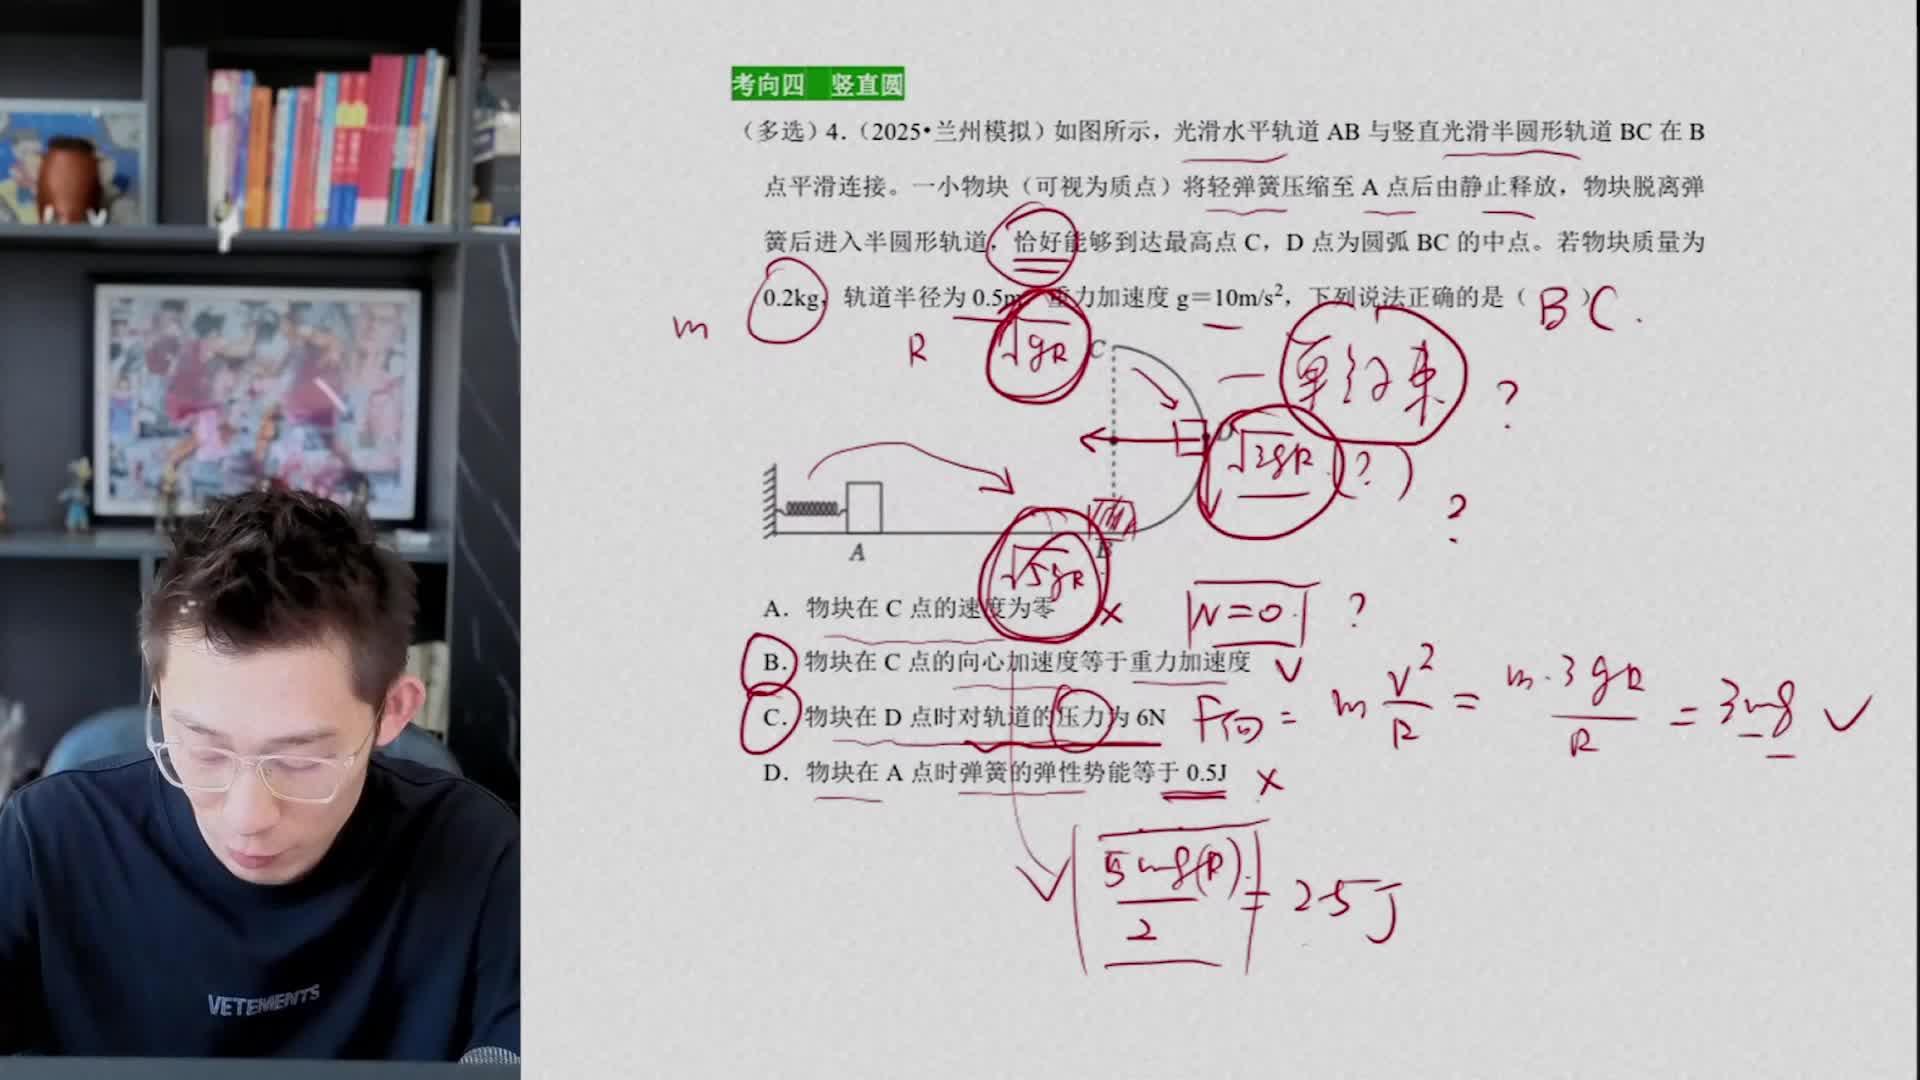 考向四 竖直圆
（多选）4.（2025•兰州模拟）如图所示，光滑水平轨道 AB 与竖直光滑半圆形轨道 BC 在 B
点平滑连接。一小物块（可视为质点）将轻弹簧压缩至 A 点后由静止释放，物块脱离弹
簧后进入半圆形轨道，恰好能够到达最高点 C，D 点为圆弧 BC 的中点。若物块质量为
0.2kg，轨道半径为 0.5m，重力加速度 g＝10m/s²，下列说法正确的是（ BC ）
m
R
√gR
C
单约束
?
D
√3gR
(?)
?
A
B
√5gR
A．物块在 C 点的速度为零 ×
N=0
?
B．物块在 C 点的向心加速度等于重力加速度 √
C．物块在 D 点时对轨道的压力为 6N
F向 = m v²/R = m·3gR/R = 3mg √
D．物块在 A 点时弹簧的弹性势能等于 0.5J ×
5mg(R)/2 = 2.5J
VETEMENTS